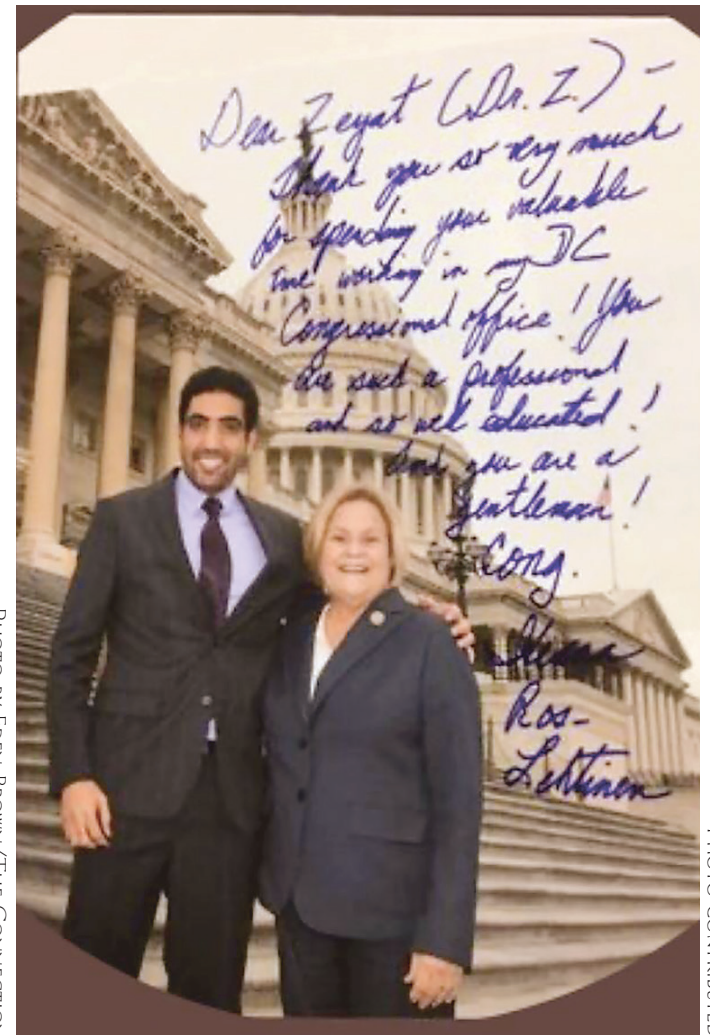 Dear Zeyat (Dr. Z.) -
Thank you so very much
for spending your valuable
time working in my DC
Congressional office! You
are such a professional
and so well educated!
And you are a
gentleman!
Cong.
Ileana
Ros-
Lehtinen
PHOTO BY EDEN BROWN/THE CONNECTION
PHOTO CONTRIBUTED